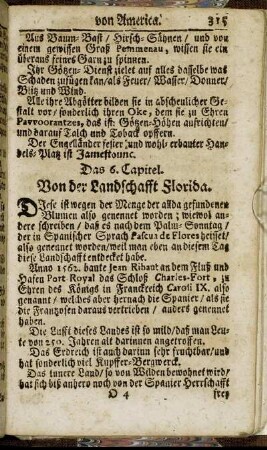 von America. 315
Aus Baum-Bast / Hirsch-Sähnen / und von
einem gewissen Graß Pemmenau, wissen sie ein
überaus feines Garn zu spinnen.
Ihr Götzen-Dienst zielet auf alles dasselbe was
Schaden zufügen kan / als Feuer / Wasser / Donner /
Blitz und Wind.
Alle ihre Abgötter bilden sie in abscheulicher Ge-
stalt vor / sonderlich ihren Oke, dem sie zu Ehren
Pavvcorances, das ist: Götzen-Höhen aufrichten /
und darauf Talch und Toback opffern.
Der Engelländer fester / und wohl-erbauter Han-
dels-Platz ist Jamestounc.
Das 6. Capitel.
Von der Landschafft Florida.
DJese ist wegen der Menge der allda gefundenen
Blumen also genennet worden; wiewol an-
dere schreiben / daß es nach dem Palm-Sonntag /
der in Spanischer Sprach Pascu de Flores heisset /
also genennet worden / weil man eben an diesem Tag
diese Landschafft entdecket habe.
Anno 1562. baute Jean Ribaut an dem Fluß und
Hafen Port Royal das Schloß Charles-Fort, zu
Ehren des Königs in Franckreich Caroli IX. also
genannt / welches aber hernach die Spanier / als sie
die Frantzosen daraus vertrieben / anders genennet
haben.
Die Lufft dieses Landes ist so mild / daß man Leu-
te von 250. Jahren alt darinnen angetroffen.
Das Erdreich ist auch dariun sehr fruchtbar / und
hat sonderlich viel Kupffer-Bergwerck.
Das innere Land / so von Wilden bewohnet wird /
hat sich biß anhero noch von der Spanier Herrschafft
O 4 frey